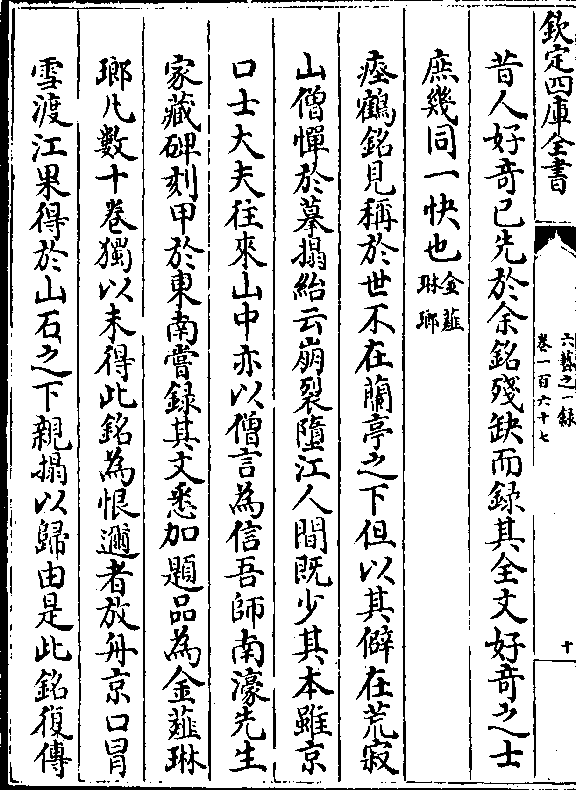 欽定四庫全書
六藝之一錄
卷一百六十七
十
昔人好奇已先於余銘殘缺而録其全文好奇之士
庶幾同一快也金薤琳瑯
瘞鶴銘見稱於世不在蘭亭之下但以其僻在荒寂
山僧憚於摹搨紿云崩裂墮江人間既少其本雖京
口士大夫往來山中亦以僧言為信吾師南濠先生
家藏碑刻甲於東南嘗録其文悉加題品為金薤琳
瑯凡數十卷獨以未得此銘為恨邇者放舟京口冒
雪渡江果得於山石之下親搨以歸由是此銘復傳